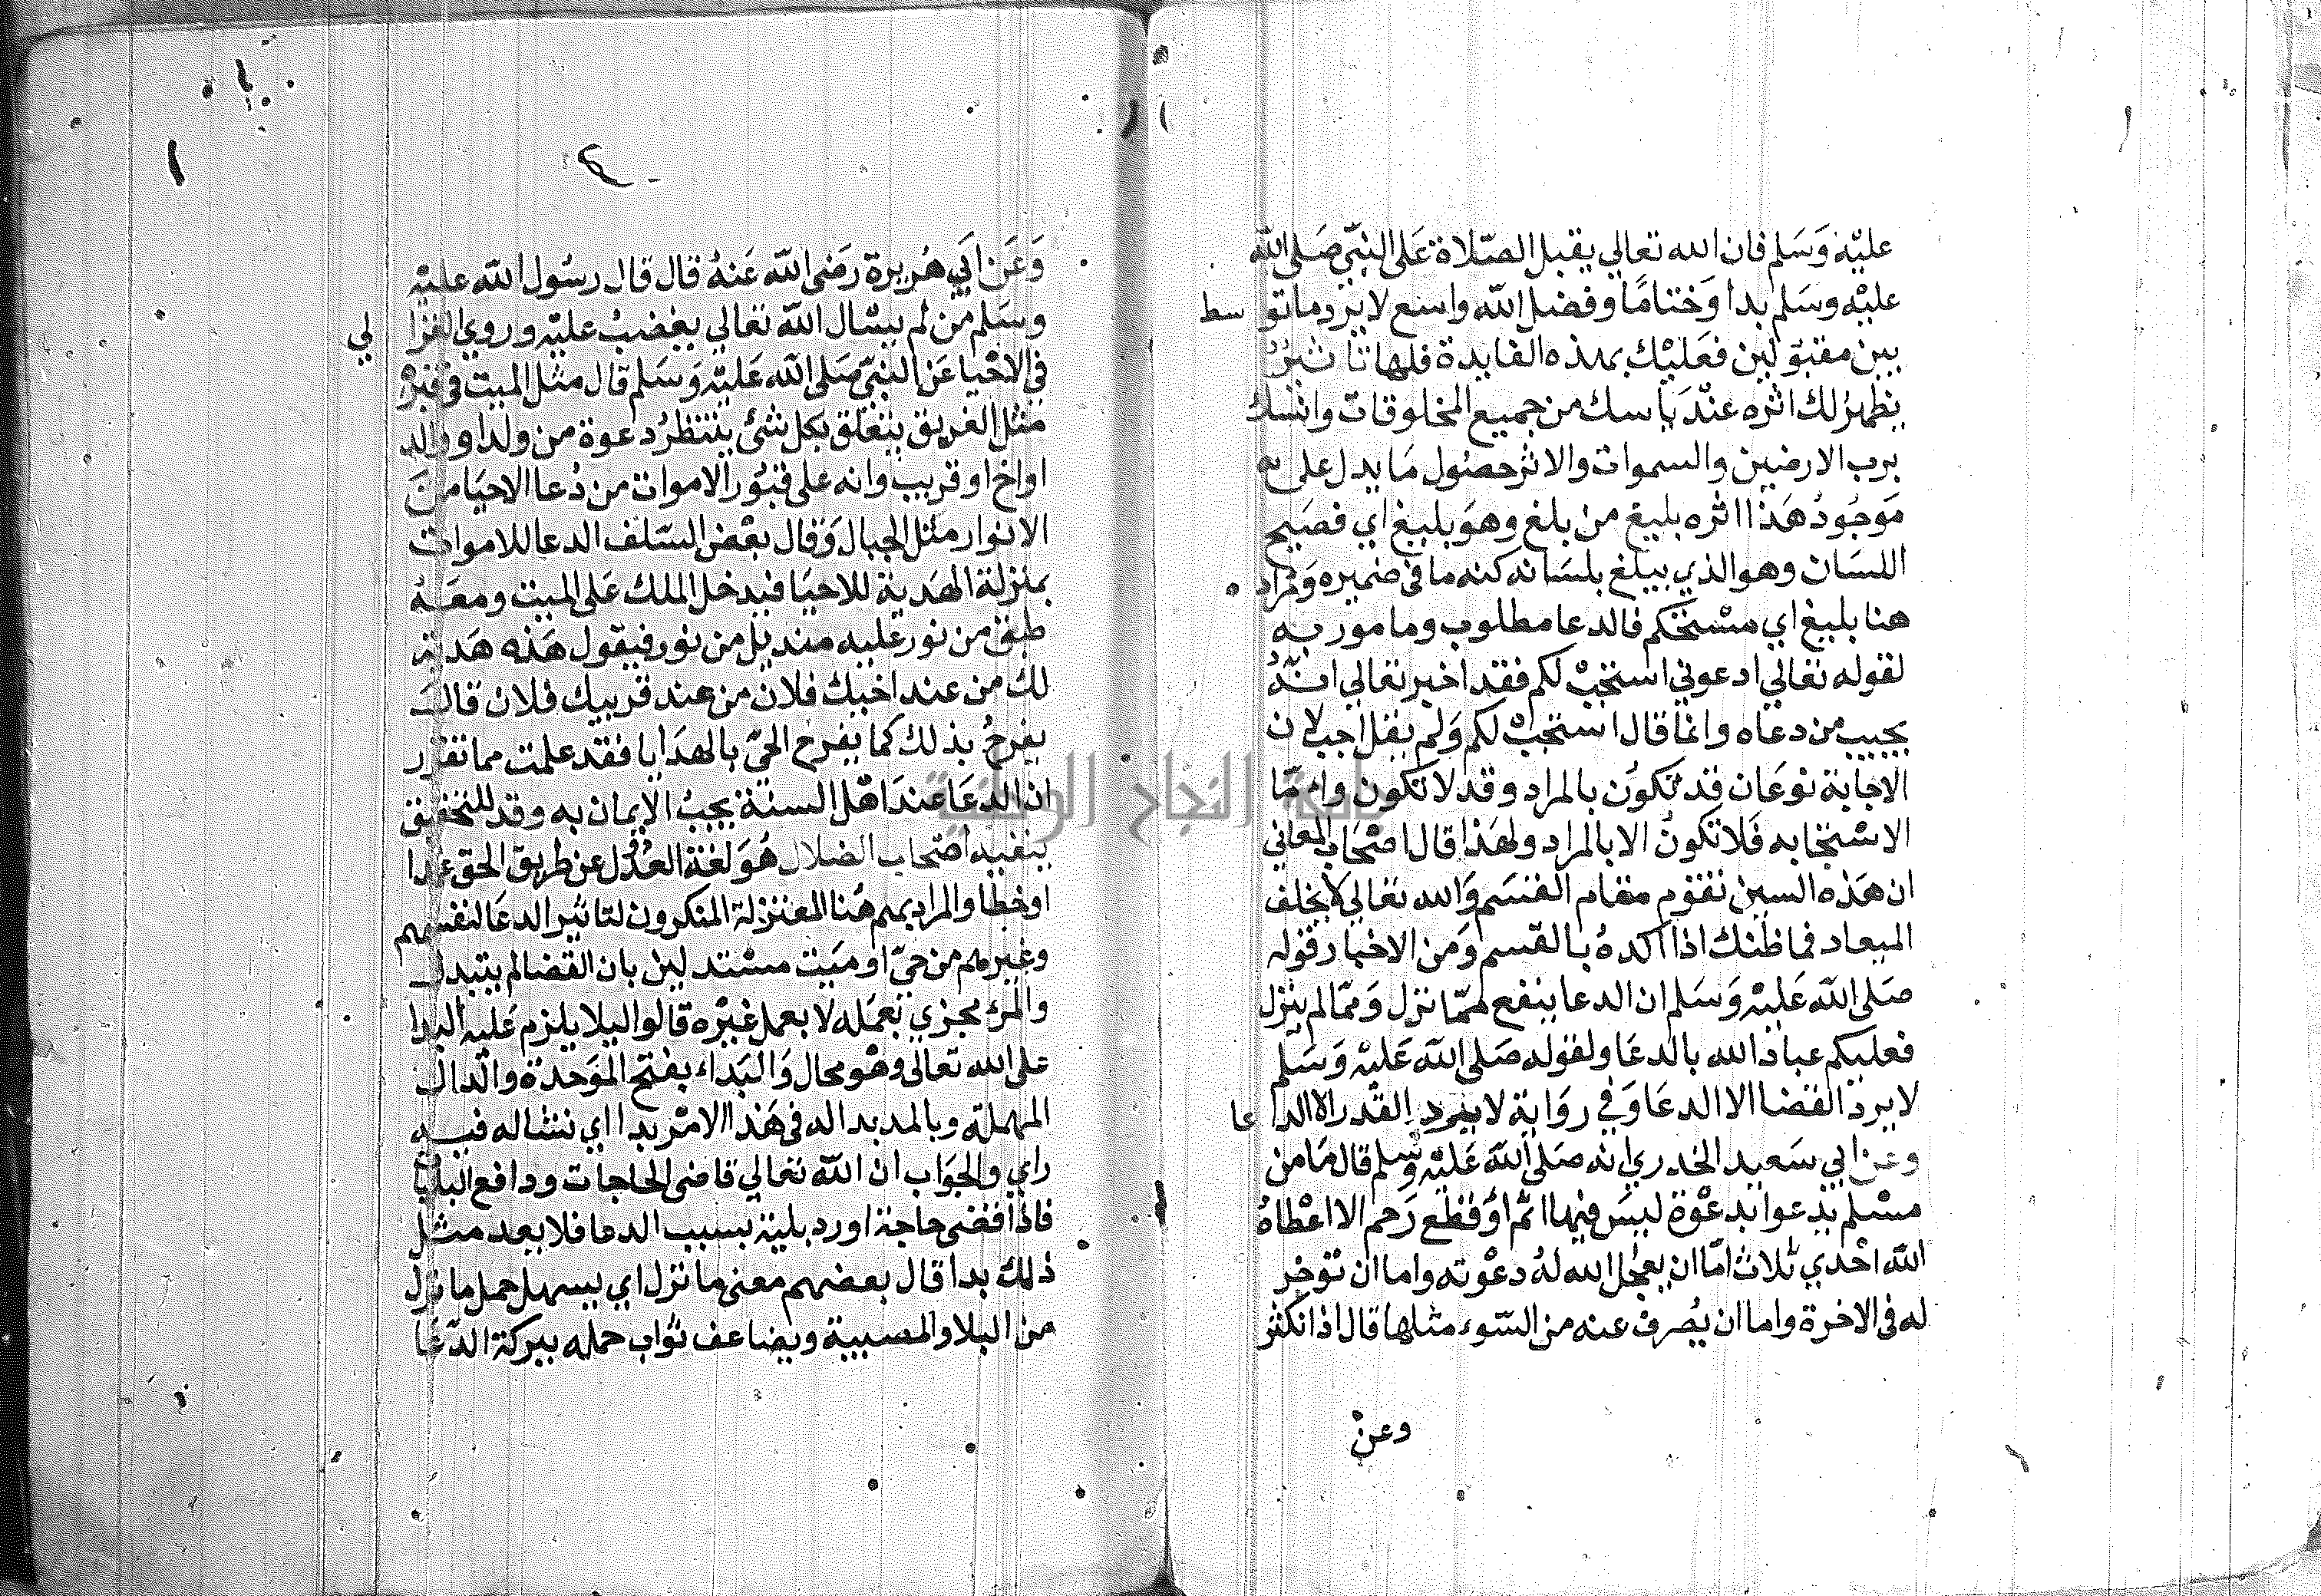 عليْه وَسَلم فان الله تعالي يقبل الصّلاة عَلى النبّي صَلى الله
عليْه وسَلم بدأ وَختامًا وفضل الله واسع لا يرد ما تو سط
بين مقبولين فعَليْك بهذه الفايدة فلها تاثيرٌ
يظهرُ لك اثره عنْدَ ياسك من جميع المخلوقات وانسك
برب الارضين والسموات والاثر حصُول مَا يدل على
مَوجُودُ هَذا اثره بليغ من بلغ وهوَ بليغ اي فصَيح
اللسَان وهو الذي يبلغ بلسَانه كنه ما في ضميره وَالمراد
هنا بليغ اي مسْتحْكم فالدعا مطلوب ومامور به
لقوله تعالي ادعوني استجبْ لكم فقد اخبر تعالي انهُ
يجيب من دعاه وانما قال استجبْ لكم وَلم يقل اجب لان
الاجابة نوعَان قد تكوُن بالمراد وقد لا تكون وامّا
الاسْتجابه فَلا تكونُ الا بالمراد ولهَذا قال اصْحَاب المعاني
ان هَذه السين تقوم مقام القسَم وَالله تعالي لا يخلف
الميعاد فما ظنك اذا اكدهُ بالقسم وَمن الاخبار قوله
صَلى الله عَليْه وَسَلم ان الدعا ينفع ممّا نزل وَممّا لم ينزل
فعليكم عبادَ الله بالدعَا ولقوله صَلى الله عَليْه وَسَلم
لا يردّ القضا الا الدعَا وَفي روَاية لا يرد القدر الا الدعا
وعن ابي سَعيد الخدري انه صَلى الله عَليْه وسلم قال مَا من
مسْلم يدعوا بدعْوة ليسَ فيها اثم اوْ قطع رَحم الا اعْطاهُ
الله احْدي ثلاث امّا ان يعجل الله لهُ دعْوته واما ان تؤخر
له في الاخرة واما ان يُصرفْ عنه من السّوء مثلها قال اذا نكثر
وعنْ
وَعَن اَبي هُريرة رَضى الله عَنهُ قال قال رسُول الله عليْه
وسَلم من لم يسْال الله تعالي يغضبُ عليْه وروي الغزالي
في الاحْيا عَن النبّي صَلى الله عَليْه وَسَلم قال مثل الميت في قبرْه
مثل الغريق يتعَلق بكل شئ ينتظرُ دعوة من ولد او والد
او اخ او قريب وانه على قبُور الاموات من دُعا الاحيَا منَ
الانوار مثل الجبال وَقال بعْض السّلف الدعا للاموات
بمنزلة الهَدية للاحيَا فيدخل الملك عَلى الميت ومعَهُ
طبق من نور عليه منديل من نور فيقول هَذه هَدية
لك من عند اخيك فلان من عند قريبك فلان قال
يفرحُ بذلك كما يفرح الحيّ بالهدَايا فقد علمت مما تقرر
ان الدعَا عندَ اهْل السنة يجبُ الايمان به وقد للتحقيق
ينفيه اصْحَاب الضلال هُوَ لغة العدُول عن طريق الحق عمدا
او خطا والمراد بهم هُنا المعتزلة المنكرون لتاثير الدعَا لنفسهم
وغيرهم من حيّ او ميَت مسْتدلين بان القضا لم يتبدل
والمرْء مجزي بعمَله لا بعمل غيْره قالوا ليلا يلزم عَليه البدا
على الله تعالى وهْو محال وَالبَداء بفتح الموَحدة والدال
المهملة وبالمد بداله في هَذا الامْر بدا اي نشاله فيه
راي والجوَاب ان الله تعالي قاضى الحاجات ودافع البلايا
فاذا قضى حاجة او رد بلية بسبب الدعا فلا يعد مثل
ذلك بدا قال بعضهم معنى ما نزل اي يسهل حمل ما نزل
من البلا والمصيبة ويضاعف ثواب حمله ببركة الدّعَا